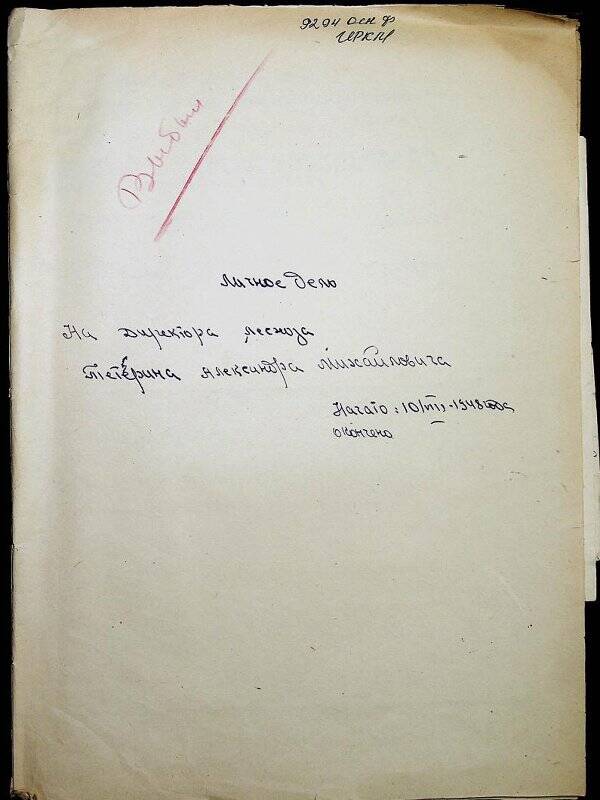 9294 осн ф
ИРКМ
Выбыл
Личное Дело
На Директора лесхоза
Тетерина Александра Михайловича
Начато: 10/VII-1948 года
окончено